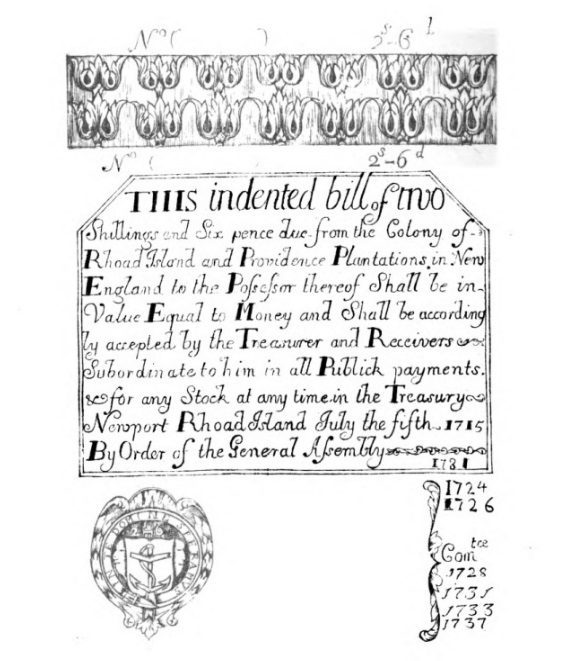 No ( ) 2s-6d
No ( 2s-6d
THIS indented bill of two
Shillings and Six pence due from the Colony of
Rhoad Island and Providence Plantations in New
England to the Poſseſsor thereof Shall be in
Value Equal to Money and Shall be according
ly accepted by the Treasurer and Receivers
Subordinate to him in all Publick payments.
for any Stock at any time in the Treasury
Newport Rhoad Island July the fifth 1715
By Order of the General Aſsembly
1731
1724
1726
Comtee
1728
1731
1733
1737